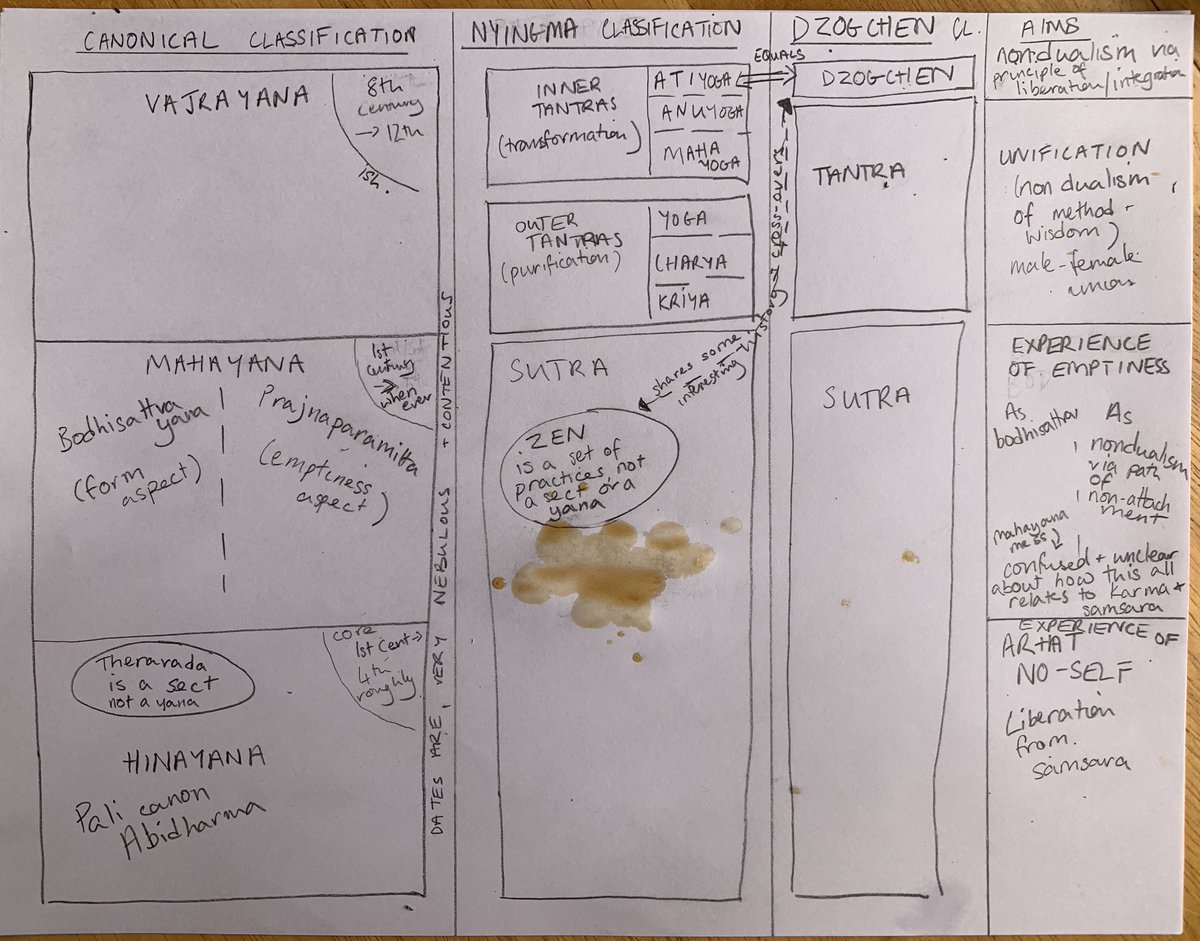 CANONICAL CLASSIFICATION
VAJRAYANA
8th
Century
→ 12th
ish.
MAHAYANA
1st
century
→
when
ever
Bodhisattva
yana
(form
aspect)
Prajnaparamitta
(emptiness
aspect)
core
1st Cent →
4th
roughly
Theravada
is a sect
not a yana
HINAYANA
Pali canon
Abidharma
DATES ARE, VERY NEBULOUS + CONTENTIOUS
NYINGMA CLASSIFICATION
INNER
TANTRAS
(transformation)
ATIYOGA
ANUYOGA
MAHA
YOGA
OUTER
TANTRAS
(purification)
YOGA
CHARYA
KRIYA
SUTRA
shares some
interesting history & cross-overs
ZEN
is a set of
practices, not
a sect or a
yana
DZOGCHEN CL.
EQUALS
DZOGCHEN
TANTRA
SUTRA
AIMS
nondualism via
principle of
liberation/integration
UNIFICATION
(non dualism
of method +
wisdom)
male-female
union
EXPERIENCE
OF EMPTINESS
As
bodhisattva
As
nondualism
via path
of
non-attach
ment
mahayana
mess
confused + unclear
about how this all
relates to karma +
samsara
EXPERIENCE OF
ARHAT
NO-SELF
Liberation
from
samsara